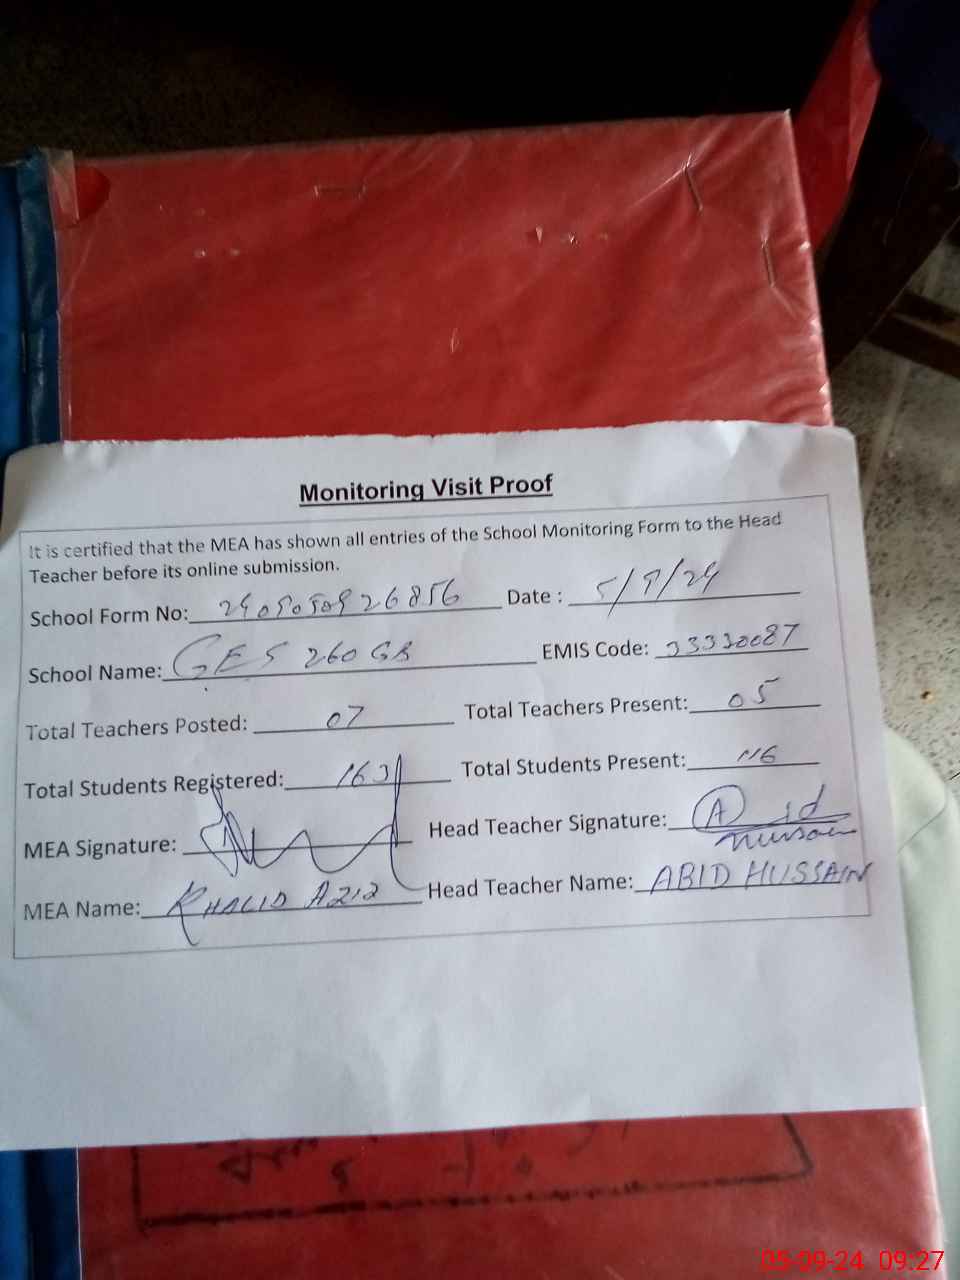 Monitoring Visit Proof
It is certified that the MEA has shown all entries of the School Monitoring Form to the Head
Teacher before its online submission.
School Form No: 2409050926856 Date : 5/9/24
School Name: GES 260 GB EMIS Code: 33330087
Total Teachers Posted: 07 Total Teachers Present: 05
Total Students Registered: 163 Total Students Present: 116
MEA Signature: Head Teacher Signature: Abid
Hussain
MEA Name: KHALID AZIZ Head Teacher Name: ABID HUSSAIN
05-09-24 09:27